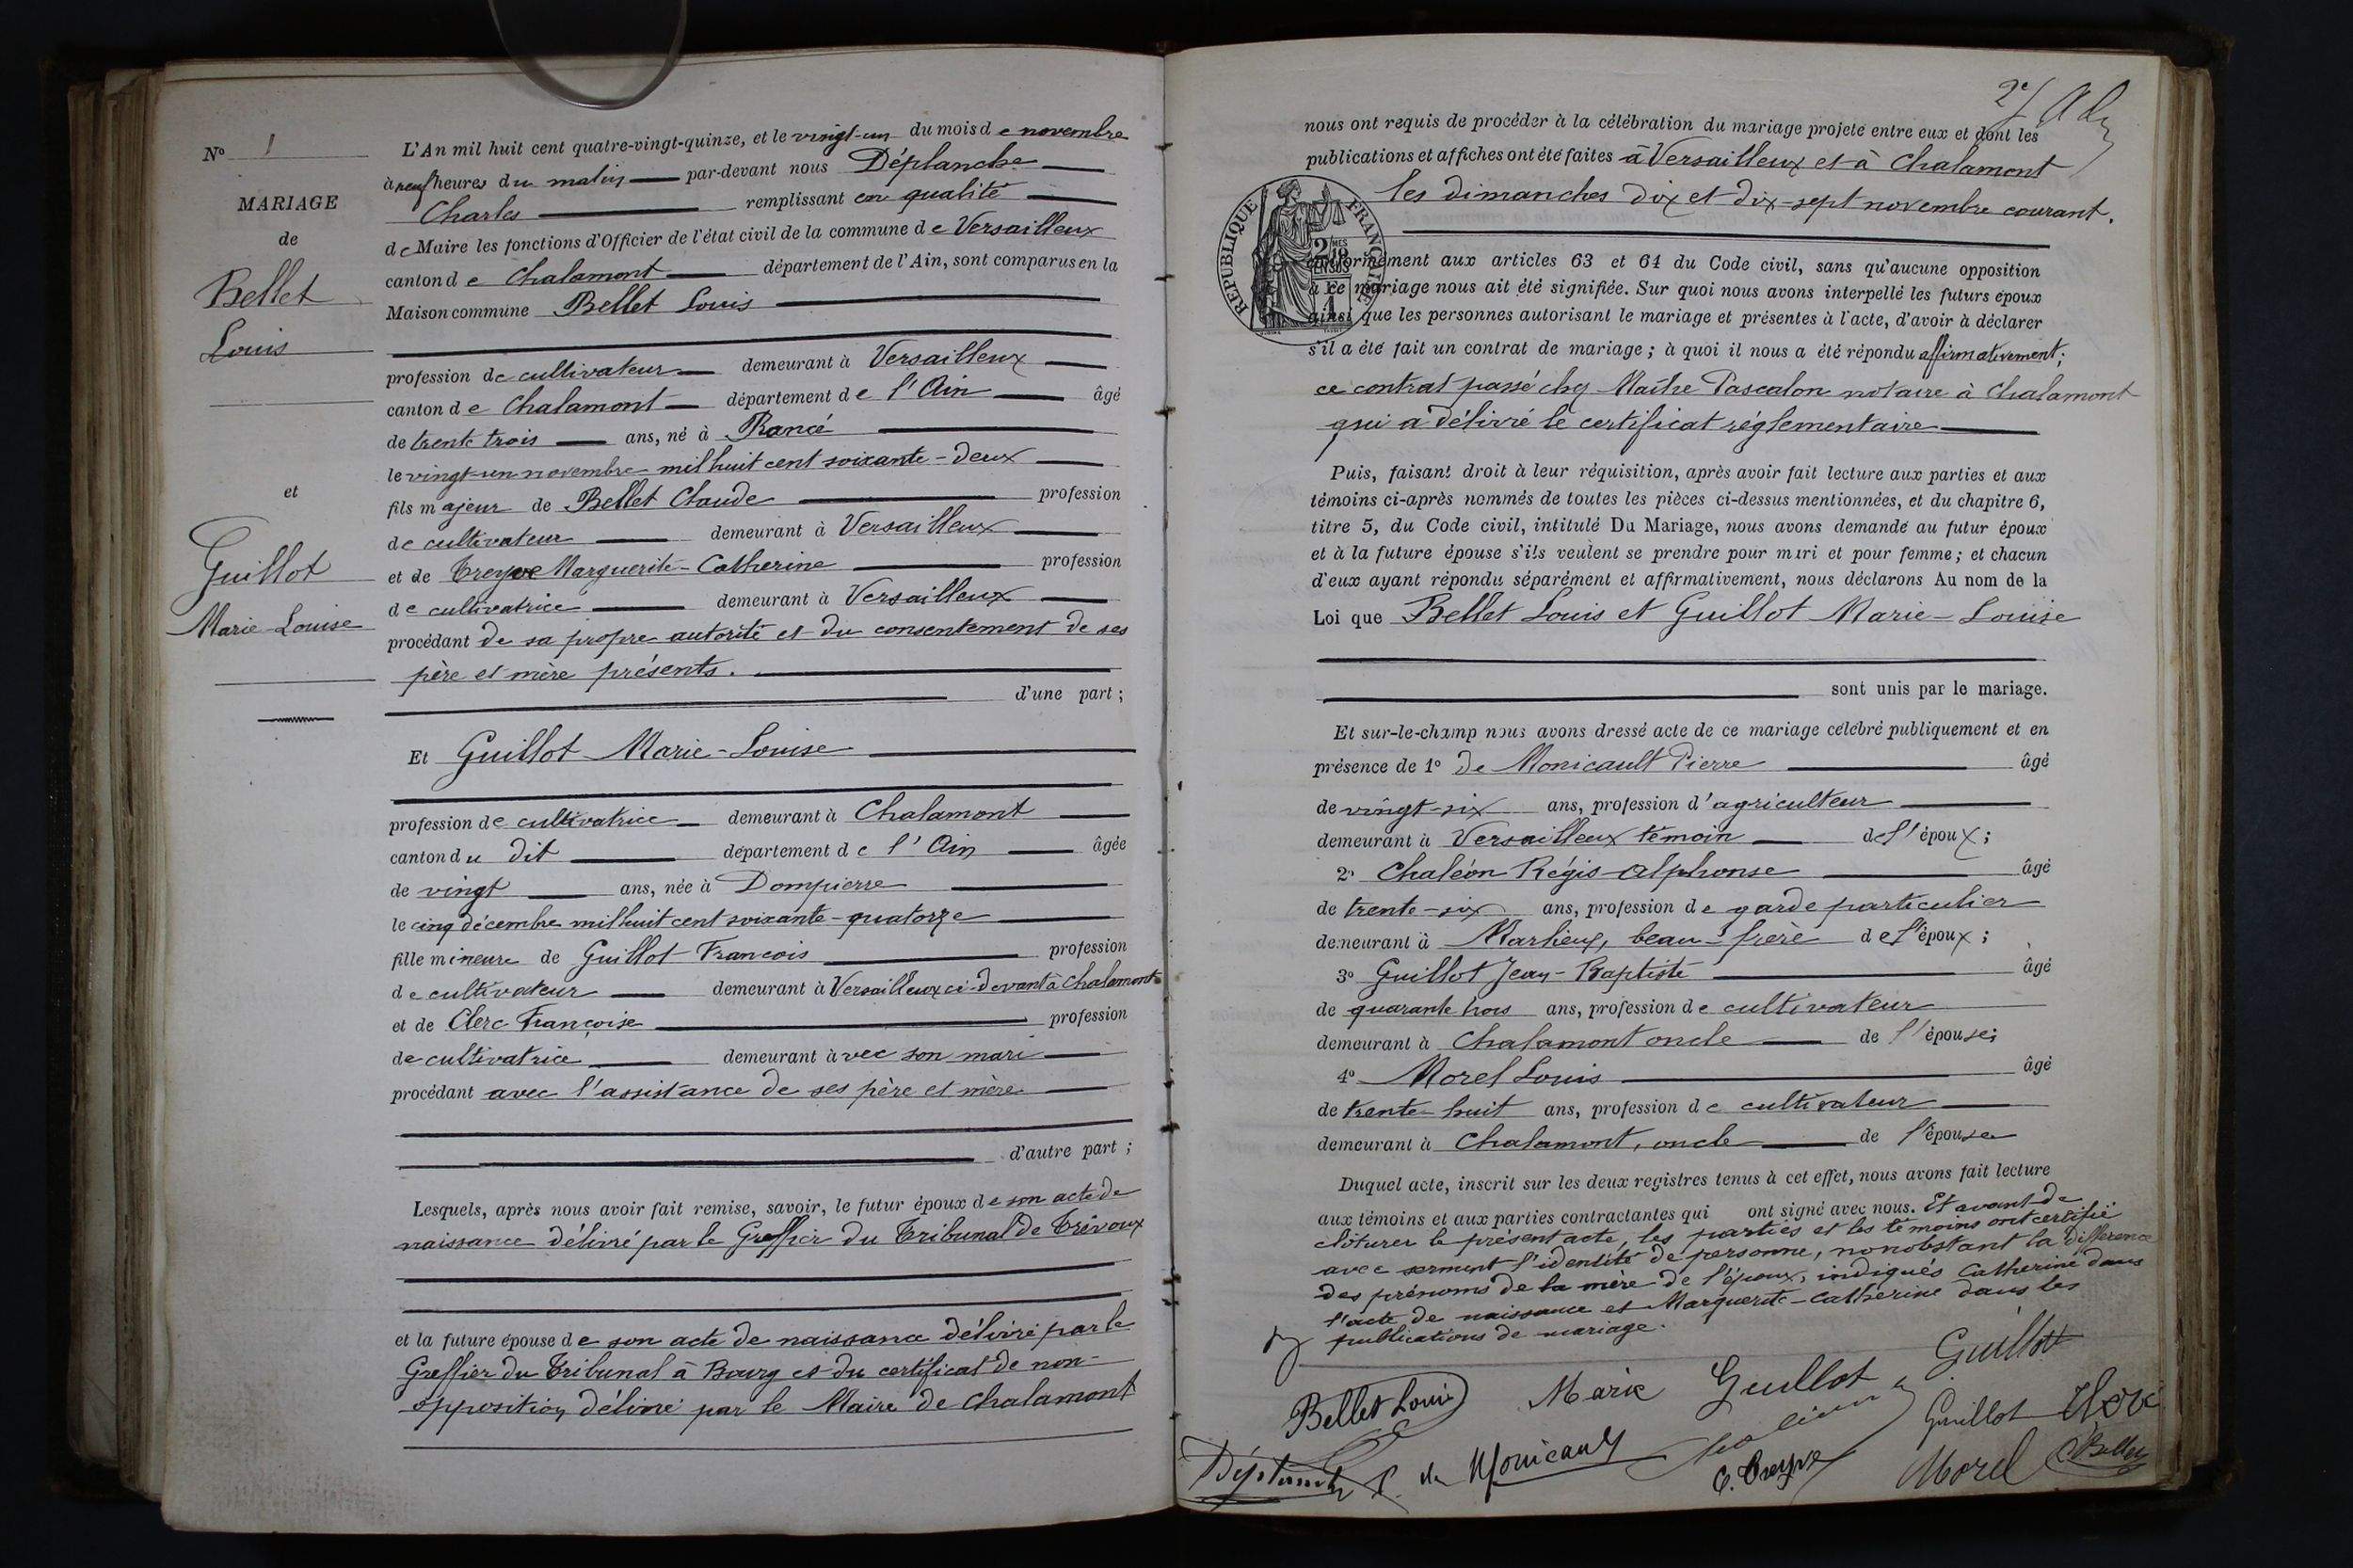 N° 1
MARIAGE
de
Bellet
Louis
et
Guillot
Marie-Louise
L'An mil huit cent quatre-vingt-quinze, et le vingt-un du mois de novembre
à neuf heures du matin par-devant nous Déplanche
Charles remplissant en qualité
de Maire les fonctions d'Officier de l'état civil de la commune de Versailleux
canton de Chalamont département de l'Ain, sont comparus en la
Maison commune Bellet Louis
profession de cultivateur demeurant à Versailleux
canton de Chalamont département de l'Ain âgé
de trente trois ans, né à Rancé
le vingt-un novembre mil huit cent soixante-deux
fils majeur de Bellet Claude profession
de cultivateur demeurant à Versailleux
et de Treyve Marguerite-Catherine profession
de cultivatrice demeurant à Versailleux
procédant de sa propre autorité et du consentement de ses
père et mère présents.
d'une part;
Et Guillot Marie-Louise
profession de cultivatrice demeurant à Chalamont
canton du dit département de l'Ain âgée
de vingt ans, née à Dompierre
le cinq décembre mil huit cent soixante-quatorze
fille mineure de Guillot François profession
de cultivateur demeurant à Versailleux ci-devant à Chalamont
et de Clerc Françoise profession
de cultivatrice demeurant avec son mari
procédant avec l'assistance de ses père et mère
d'autre part;
Lesquels, après nous avoir fait remise, savoir, le futur époux de son acte de
naissance délivré par le Greffier du Tribunal de Trévoux
et la future épouse de son acte de naissance délivré par le
Greffier du Tribunal à Bourg et du certificat de non-
opposition délivré par le Maire de Chalamont
nous ont requis de procéder à la célébration du mariage projeté entre eux et dont les
publications et affiches ont été faites à Versailleux et à Chalamont
les dimanches dix et dix-sept novembre courant.
RÉPUBLIQUE FRANÇAISE
conformément aux articles 63 et 64 du Code civil, sans qu'aucune opposition
à ce mariage nous ait été signifiée. Sur quoi nous avons interpellé les futurs époux
ainsi que les personnes autorisant le mariage et présentes à l'acte, d'avoir à déclarer
s'il a été fait un contrat de mariage; à quoi il nous a été répondu affirmativement;
ce contrat passé chez Maître Pascalon notaire à Chalamont
qui a délivré le certificat réglementaire
Puis, faisant droit à leur réquisition, après avoir fait lecture aux parties et aux
témoins ci-après nommés de toutes les pièces ci-dessus mentionnées, et du chapitre 6,
titre 5, du Code civil, intitulé Du Mariage, nous avons demandé au futur époux
et à la future épouse s'ils veulent se prendre pour mari et pour femme; et chacun
d'eux ayant répondu séparément et affirmativement, nous déclarons Au nom de la
Loi que Bellet Louis et Guillot Marie-Louise
sont unis par le mariage.
Et sur-le-champ nous avons dressé acte de ce mariage célébré publiquement et en
présence de 1° De Monicault Pierre âgé
de vingt-six ans, profession d'agriculteur
demeurant à Versailleux témoin de l'époux;
2° Chaléon Régis-Alphonse âgé
de trente-six ans, profession de garde particulier
demeurant à Marlieux, beau-frère de l'époux;
3° Guillot Jean-Baptiste âgé
de quarante trois ans, profession de cultivateur
demeurant à Chalamont oncle de l'épouse;
4° Morel Louis âgé
de trente-huit ans, profession de cultivateur
demeurant à Chalamont, oncle de l'épouse
Duquel acte, inscrit sur les deux registres tenus à cet effet, nous avons fait lecture
aux témoins et aux parties contractantes qui ont signé avec nous. Et avant de
clôturer le présent acte, les parties et les témoins ont certifié
avec serment l'identité de personne, nonobstant la différence
des prénoms de la mère de l'époux, indiqués Catherine dans
l'acte de naissance et Marguerite-Catherine dans les
publications de mariage.
Bellet Louis Marie Guillot Guillot
Guillot
P. de Monicault C. Treyve Morel Bellet